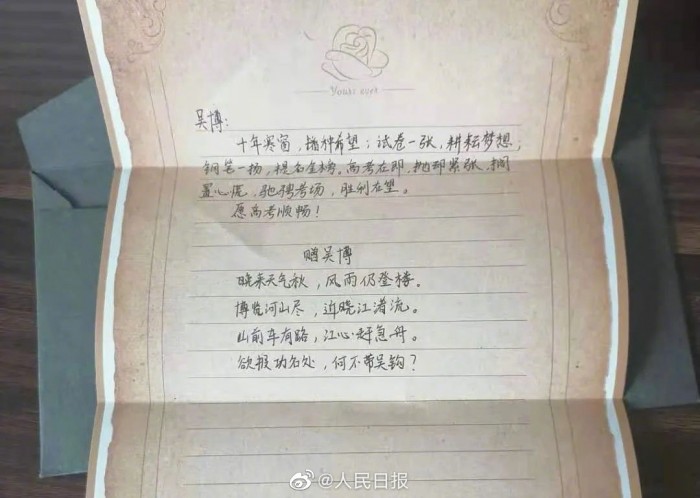 Yours ever
吴博：
十年寒窗，播种希望；试卷一张，耕耘梦想，
钢笔一扬，提名金榜。高考在即，抛却紧张，搁
置心慌，驰骋考场，胜利在望。
愿高考顺畅！
赠吴博
晚来天气秋，风雨仍登楼。
博览河山尽，近晓江渚流。
山前车有路，江心赶急舟。
欲报功名处，何不带吴钩？
@人民日报